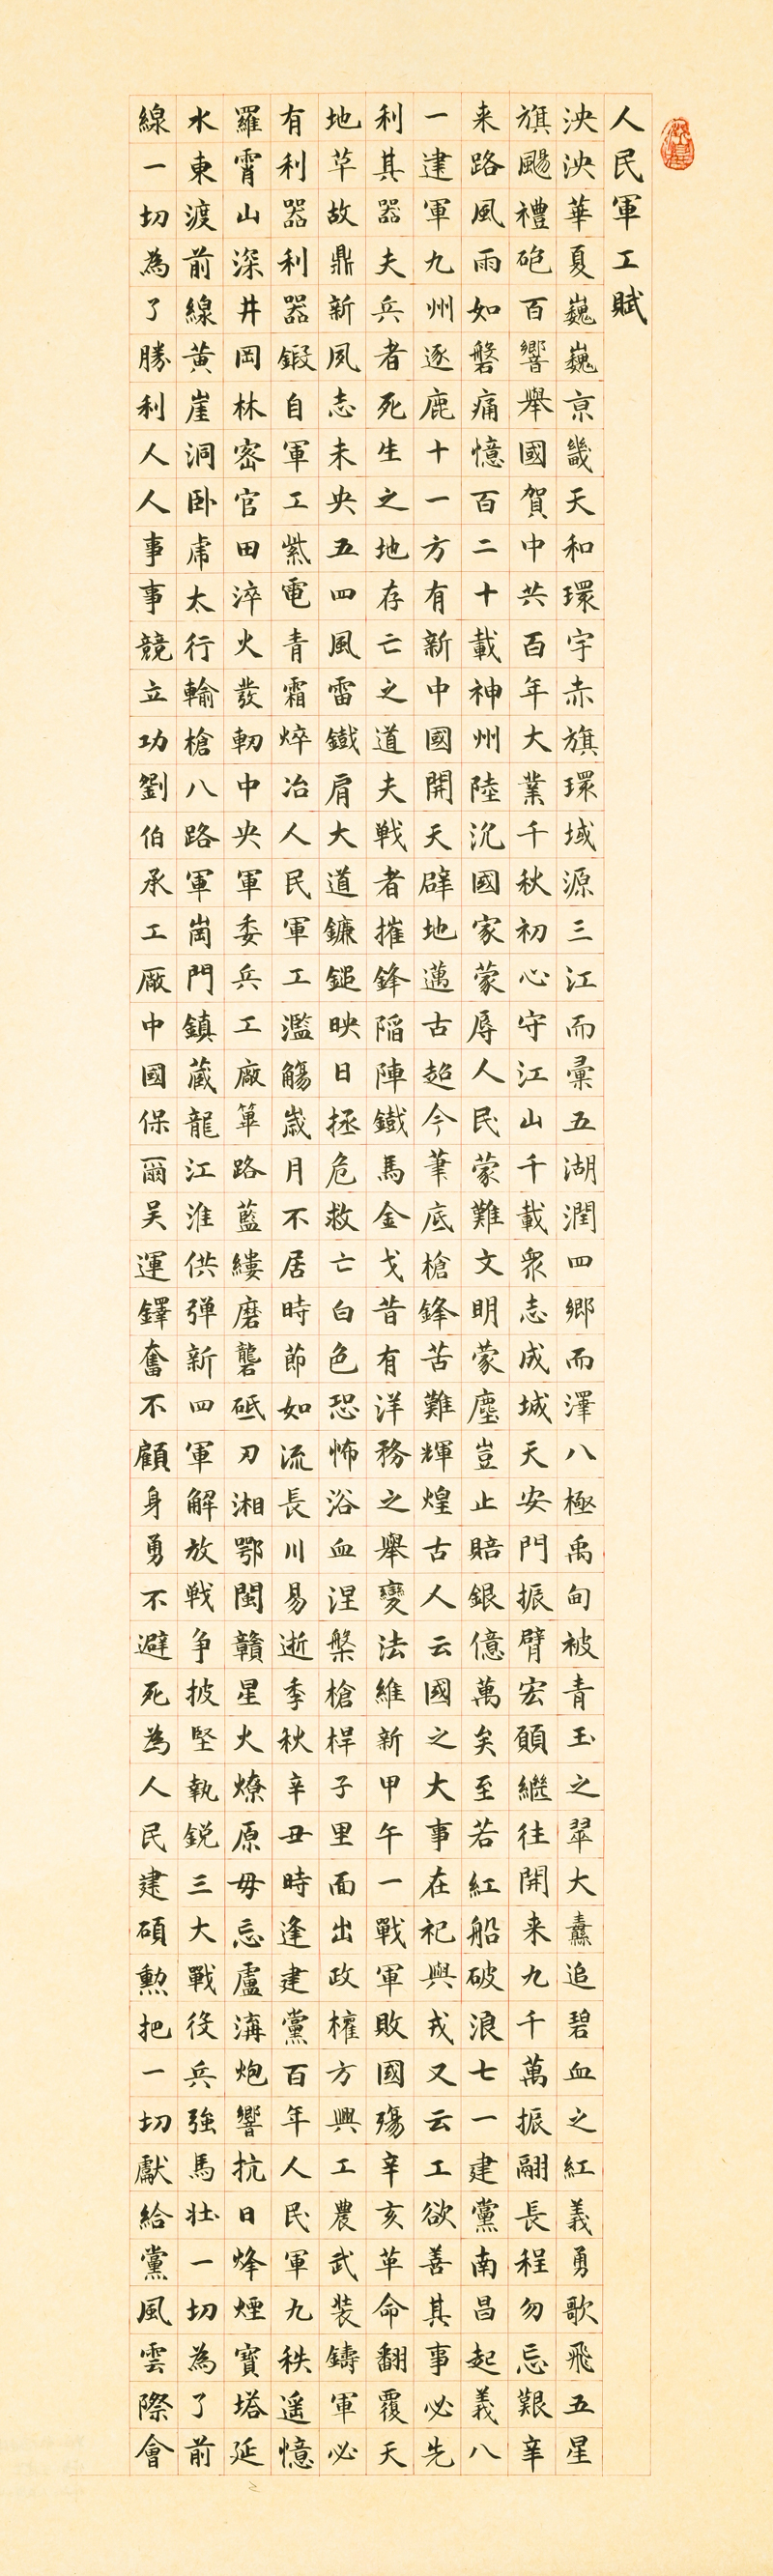 人民軍工賦
泱泱華夏巍巍京畿天和環宇赤旗環域源三江而彙五湖潤四鄉而澤八極禹甸被青玉之翠大纛追碧血之紅義勇歌飛五星
旗颺禮砲百響舉國賀中共百年大業千秋初心守江山千載衆志成城天安門振臂宏願繼往開来九千萬振翮長程勿忘艱辛
来路風雨如磐痛憶百二十載神州陸沉國家蒙辱人民蒙難文明蒙塵豈止賠銀億萬矣至若紅船破浪七一建黨南昌起義八
一建軍九州逐鹿十一方有新中國開天辟地邁古超今筆底槍鋒苦難輝煌古人云國之大事在祀與戎又云工欲善其事必先
利其器夫兵者死生之地存亡之道夫戰者摧鋒陷陣鐵馬金戈昔有洋務之舉變法維新甲午一戰軍敗國殤辛亥革命翻覆天
地革故鼎新夙志未央五四風雷鐵肩大道鐮鎚映日拯危救亡白色恐怖浴血涅槃槍桿子里面出政權方興工農武装鑄軍必
有利器利器鍛自軍工紫電青霜焠冶人民軍工濫觴歲月不居時節如流長川易逝季秋辛丑時逢建黨百年人民軍九秩遥憶
羅霄山深井岡林密官田淬火發軔中央軍委兵工廠篳路藍縷磨礱砥刃湘鄂閩贛星火燎原毋忘盧溝炮響抗日烽煙寶塔延
水東渡前線黄崖洞卧虎太行輸槍八路軍崗門鎮藏龍江淮供弹新四軍解放戰争披堅執銳三大戰役兵強馬壯一切為了前
線一切為了勝利人人事事競立功劉伯承工厰中國保爾吴運鐸奮不顧身勇不避死為人民建碩勲把一切獻給黨風雲際會